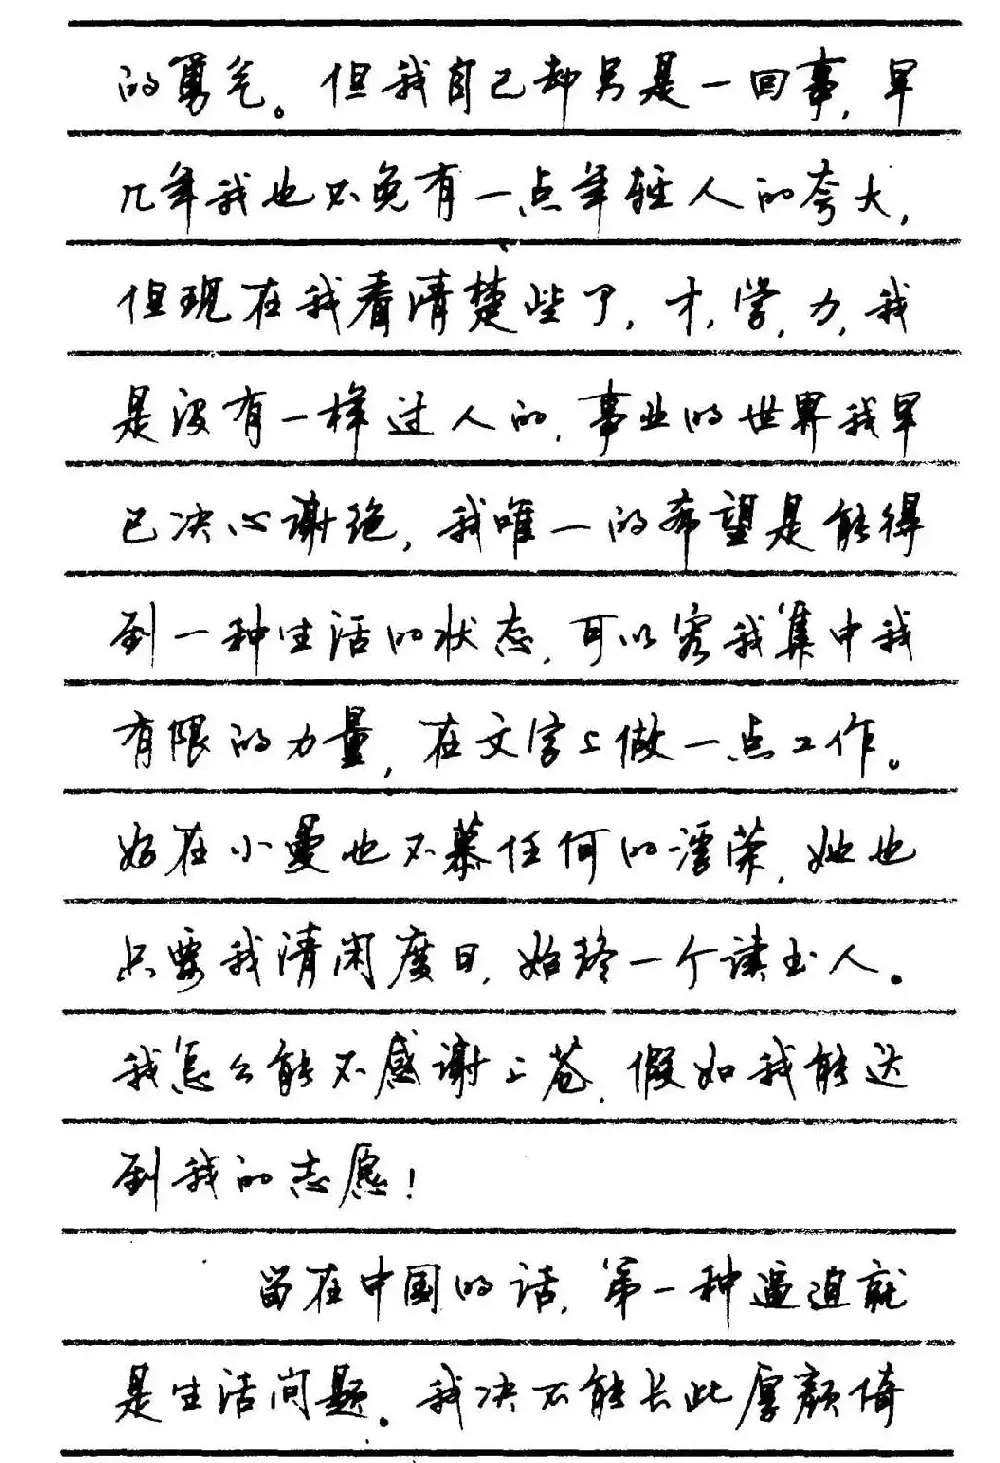 的勇气。但我自己却另是一回事，早
几年我也不免有一点年轻人的夸大，
但现在我看清楚些了，才，学，力，我
是没有一样过人的，事业的世界我早
已决心谢绝，我唯一的希望是能得
到一种生活的状态，可以容我集中我
有限的力量，在文字上做一点工作。
好在小曼也不慕任何的浮荣，她也
只要我清闲度日，始终一个读书人。
我怎么能不感谢上苍，假如我能达
到我的志愿！
留在中国的话，第一种逼迫就
是生活问题。我决不能长此厚颜倚